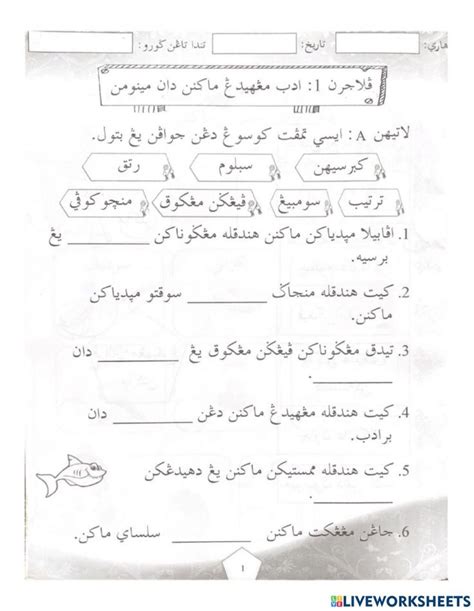 هاري:
تاريخ:
تندا تاڠن ݢورو:
ڤلاجرن 1: ادب مڠهيدڠ ماكنن دان مينومن
لاتيهن A: ايسي تمڤت كوسوڠ دڠن جواڤن يڠ بتول.
كبرسيهن
سبلوم
رتق
ترتيب
سومبيڠ
ڤيڠݢن مڠكوق
منچوكوڤي
1. اڤابيلا مپدياكن ماكنن هندقله مڠݢوناكن __________ يڠ
برسيه.
2. كيت هندقله منجاݢ __________ سوقتو مپدياكن
ماكنن.
3. تيدق مڠݢوناكن ڤيڠݢن مڠكوق يڠ __________ دان
__________.
4. كيت هندقله مڠهيدڠ ماكنن دڠن __________ دان
برادب.
5. كيت هندقله ممستيكن ماكنن يڠ دهيدڠكن
__________.
6. جاڠن مڠڠكت ماكنن __________ سلساي ماكن.
1
LIVEWORKSHEETS